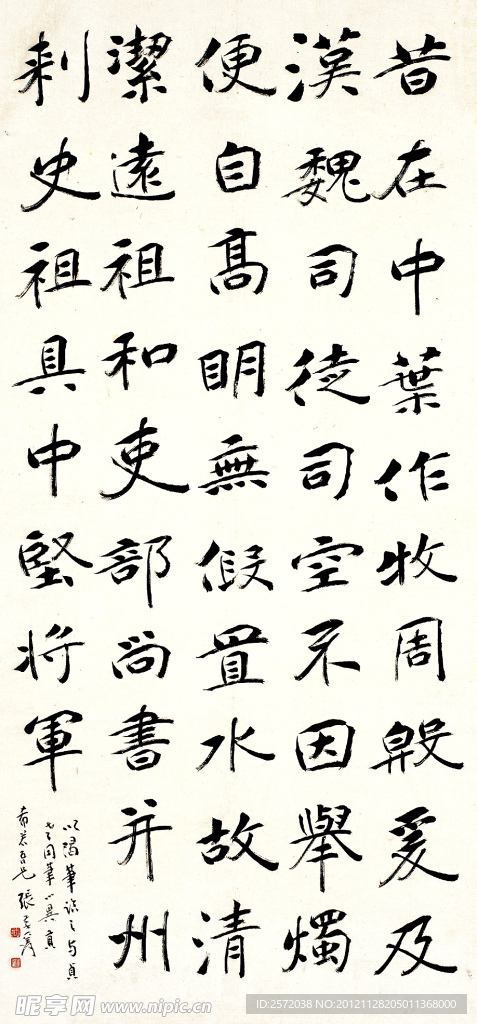 昔在中葉作牧周殷爰及
漢魏司徒司空不因舉燭
便自高明無假置水故清
潔遠祖和吏部尚書并州
刺史祖具中堅將軍
以渴筆臨之与貞
同筆
吾兄 張
昵享网 www.nipic.cn
ID:2572038 NO:20121128205011368000